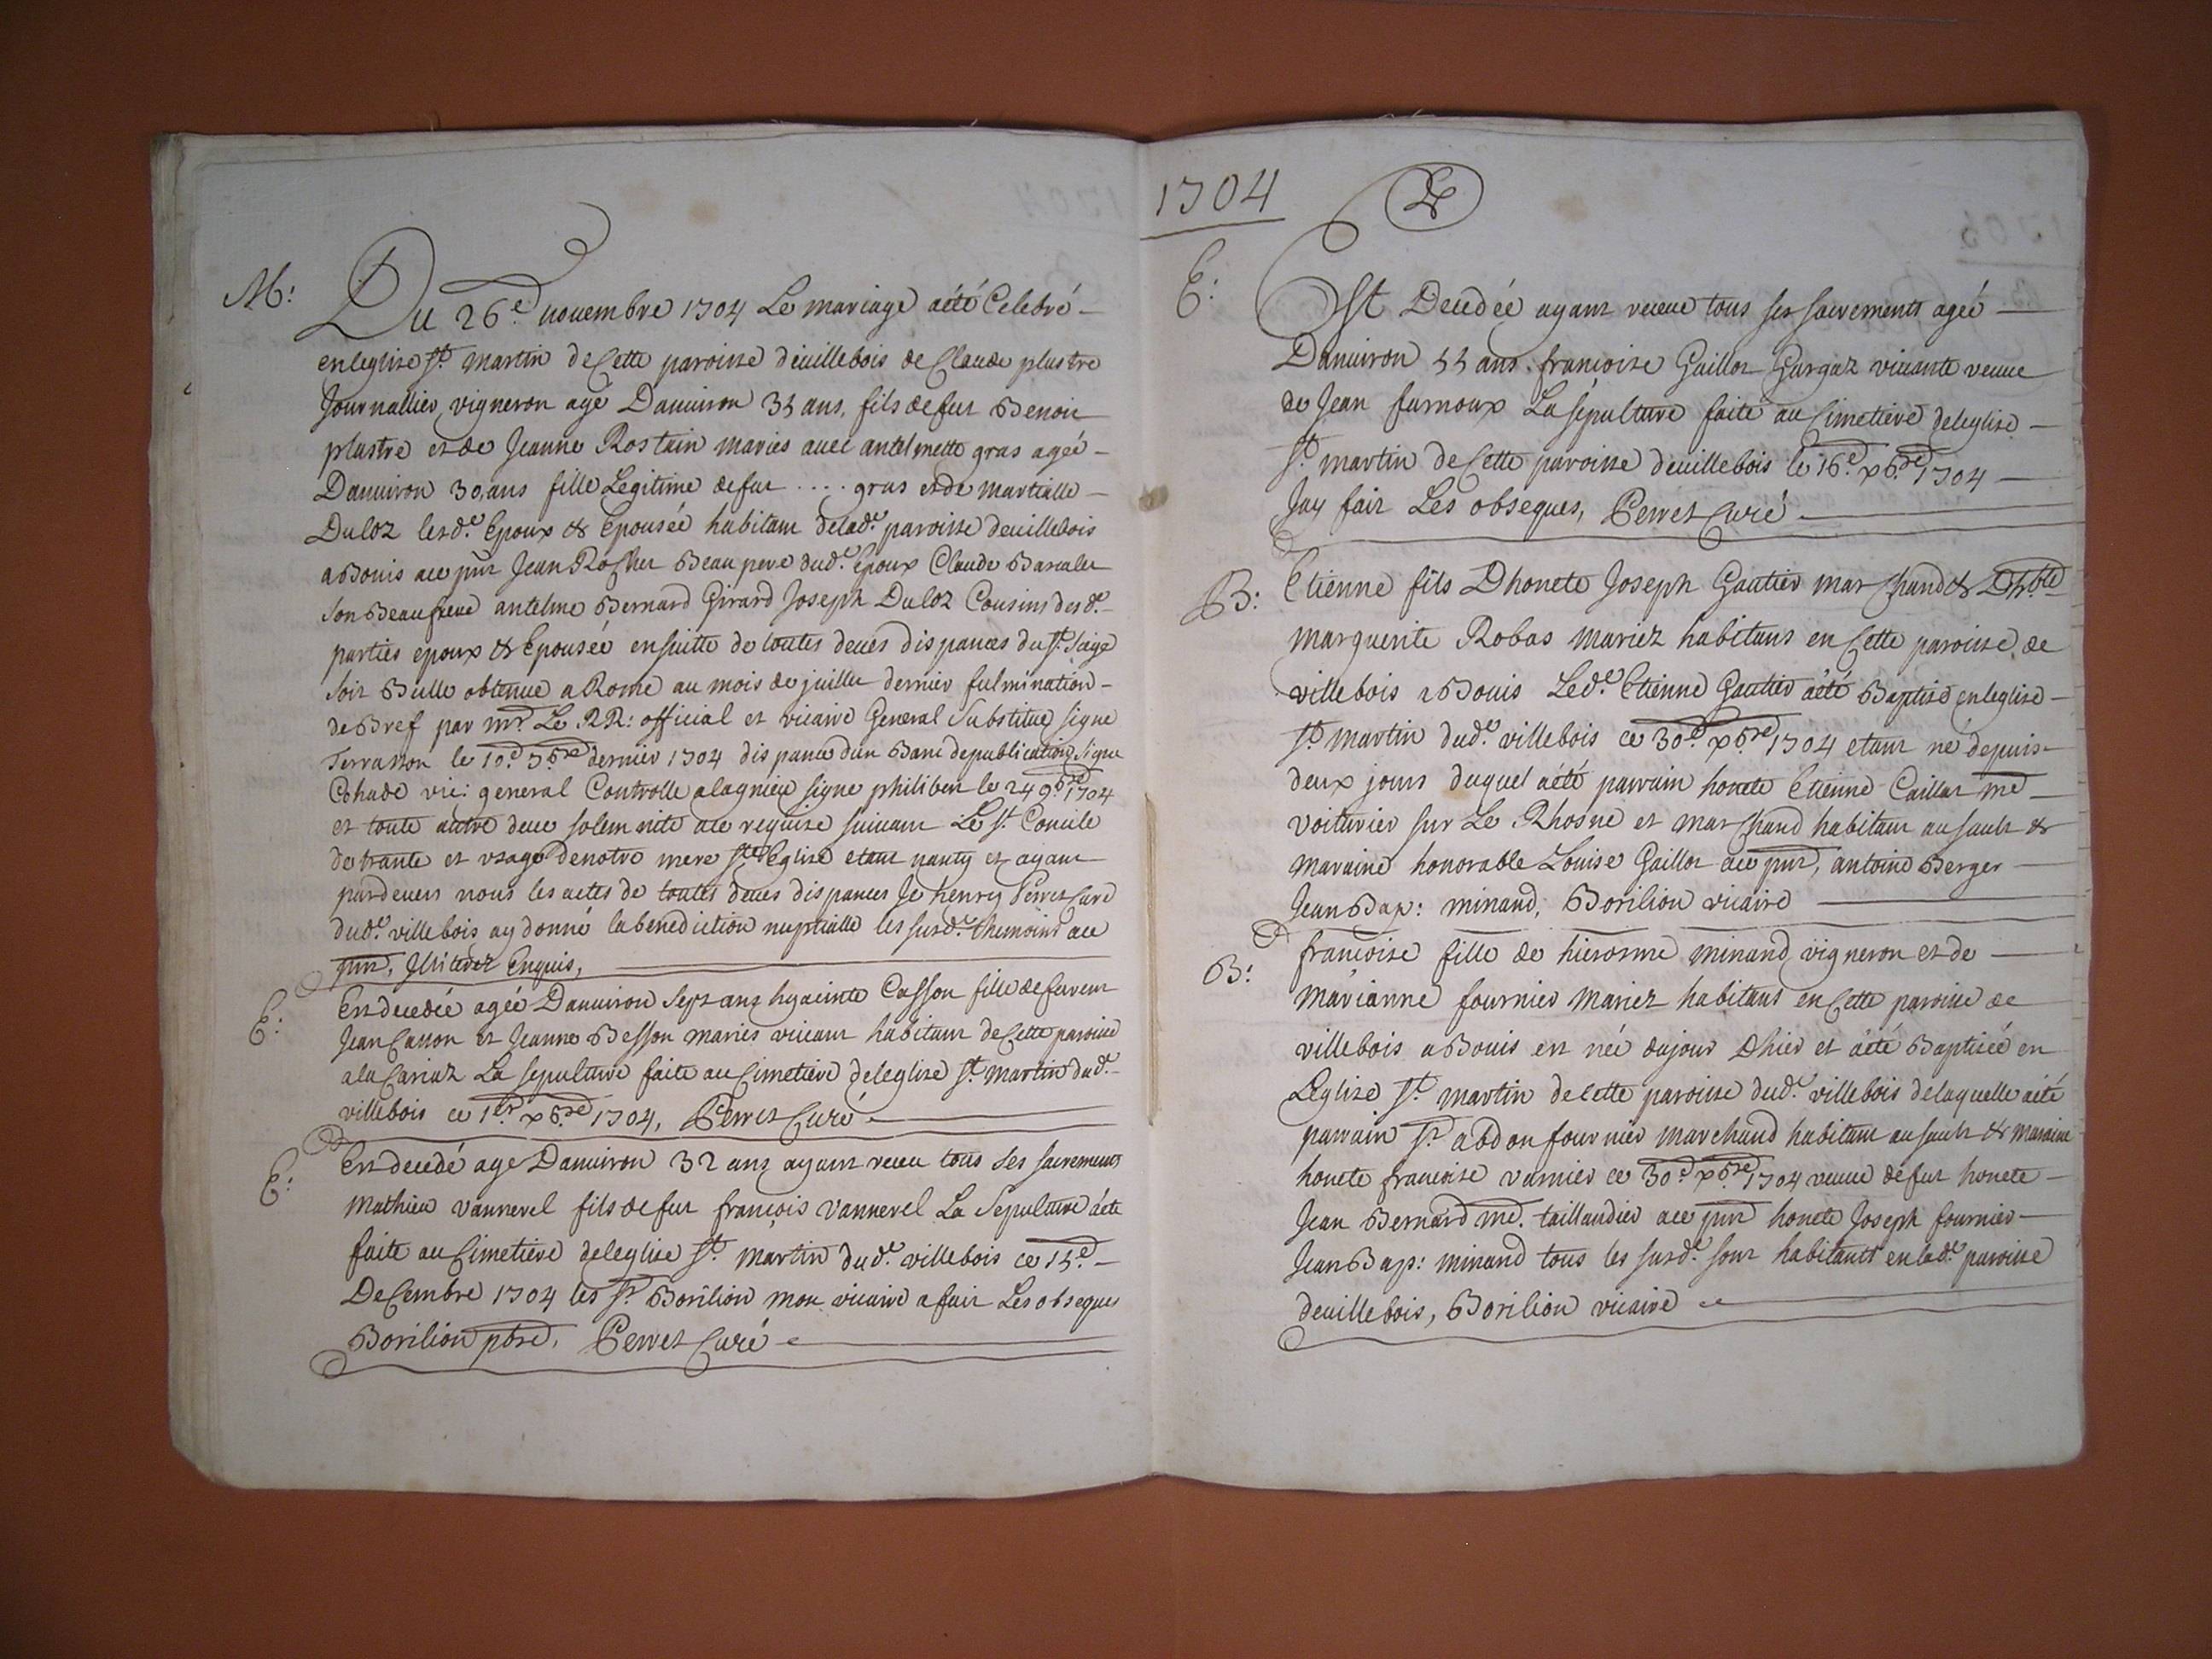 1704
M:
Du 26e. nouembre 1704 Le mariage aété Celebré
enleglise st. martin de Cette paroisse deuillebois de Claude plastre
Journallier, vigneron agé Danuiron 35 ans, fils defut Benoit
plastre et de Jeanne Rostain mariés auec antelmette gras agée
Danuiron 30, ans fille Legitime defut .... gras et de martialle
Duloz lesde. Epoux & Epousée habitant delade. paroisse deuillebois
aBouis ace pnt Jean Rocher Beau pere dude. Epoux Claude
son Beaufrere antelme Bernard Girard Joseph Duloz Cousins desde.
parties epoux & Epousée ensuitte de toutes deues dispances du st. siege
soit Bulle obtenue a Rome au mois de juillet dernier fulmination
de Bref par mr. Le RR: official et vicaire General Substitué signé
Terrasson le 10e. 7bre dernier 1704 dispance dun Banc depublication, signé
Cohade vic: general Controlle alagnieu signé philibert le 24 9bre 1704
et toute autre deue solemnité ace requise suiuant Le st. Concile
de trante et vsage denotre mere ste. Eglise etant nanty et ayant
pardeuers nous les actes de toutes deues dispances Je henry Perret Curé
dude. villebois ay donné labenediction nuptialle les susde. themoins ace
pnt, Jllitérez Enquis,
E:
Est decedée agée Danuiron sept ans hyacinte Casson fille de feruent
Jean Casson et Jeanne Besson mariés viuant habitant de Cette paroisse
ala Cariaz La sepulture faite au Cimetiere deleglise st. martin dude.
villebois ce 1er. xbre 1704, Perret Curé
E:
Est decedé age Danuiron 32 ans ayant receu tous ses sacrements
Mathieu vannerel fils defut françois vannerel La Sepulture áété
faite au Cimetiere deleglise st. martin dude. villebois ce 15e.
DeCembre 1704 les sr. Borilion mon vicaire a fait Les obseques
Borilion pbre, Perret Curé
E:
Est Decedée ayant receue tous ses sacrements agée
Danuiron 55 ans. françoise Gaillot Gargaz viuante veuue
de Jean furnoux La sepulture faite au Cimetiere deleglise
st. martin de Cette paroisse deuillebois le 16e. xbre 1704
Jay fait Les obseques, Perret Curé
B:
Etienne fils Dhonete Joseph Gautier marchand & Dhble
marguerite Robas mariez habitans en Cette paroisse de
villebois aBouis Lede. Etienne Gautier aété Baptisé enleglise
st. martin dude. villebois ce 30e. xbre 1704 etant né depuis
deux jours duquel aété parrain honete Etienne Caillat md
voiturier sur Le Rhosne et marchand habitant au sault &
maraine honorable Louise Gaillot ace pnt, antoine Berger
Jean Bap: minand, Borilion vicaire
B:
françoise fille de hierosme minand vigneron et de
márianne fournier mariez habitans en Cette paroisse de
villebois aBouis est née dujour Dhier et áété Baptisée en
Léglise st. martin decette paroisse dude. villebois delaquelle aété
parrain sr abdon fournier marchand habitant au sault & maraine
honete françoise varnier ce 30e. xbre 1704 veuue defut honete
Jean Bernard md. taillandier ace pnt honete Joseph fournier
Jean Bap: minand tous les susde. sont habitants enlade. paroisse
deuillebois, Borilion vicaire